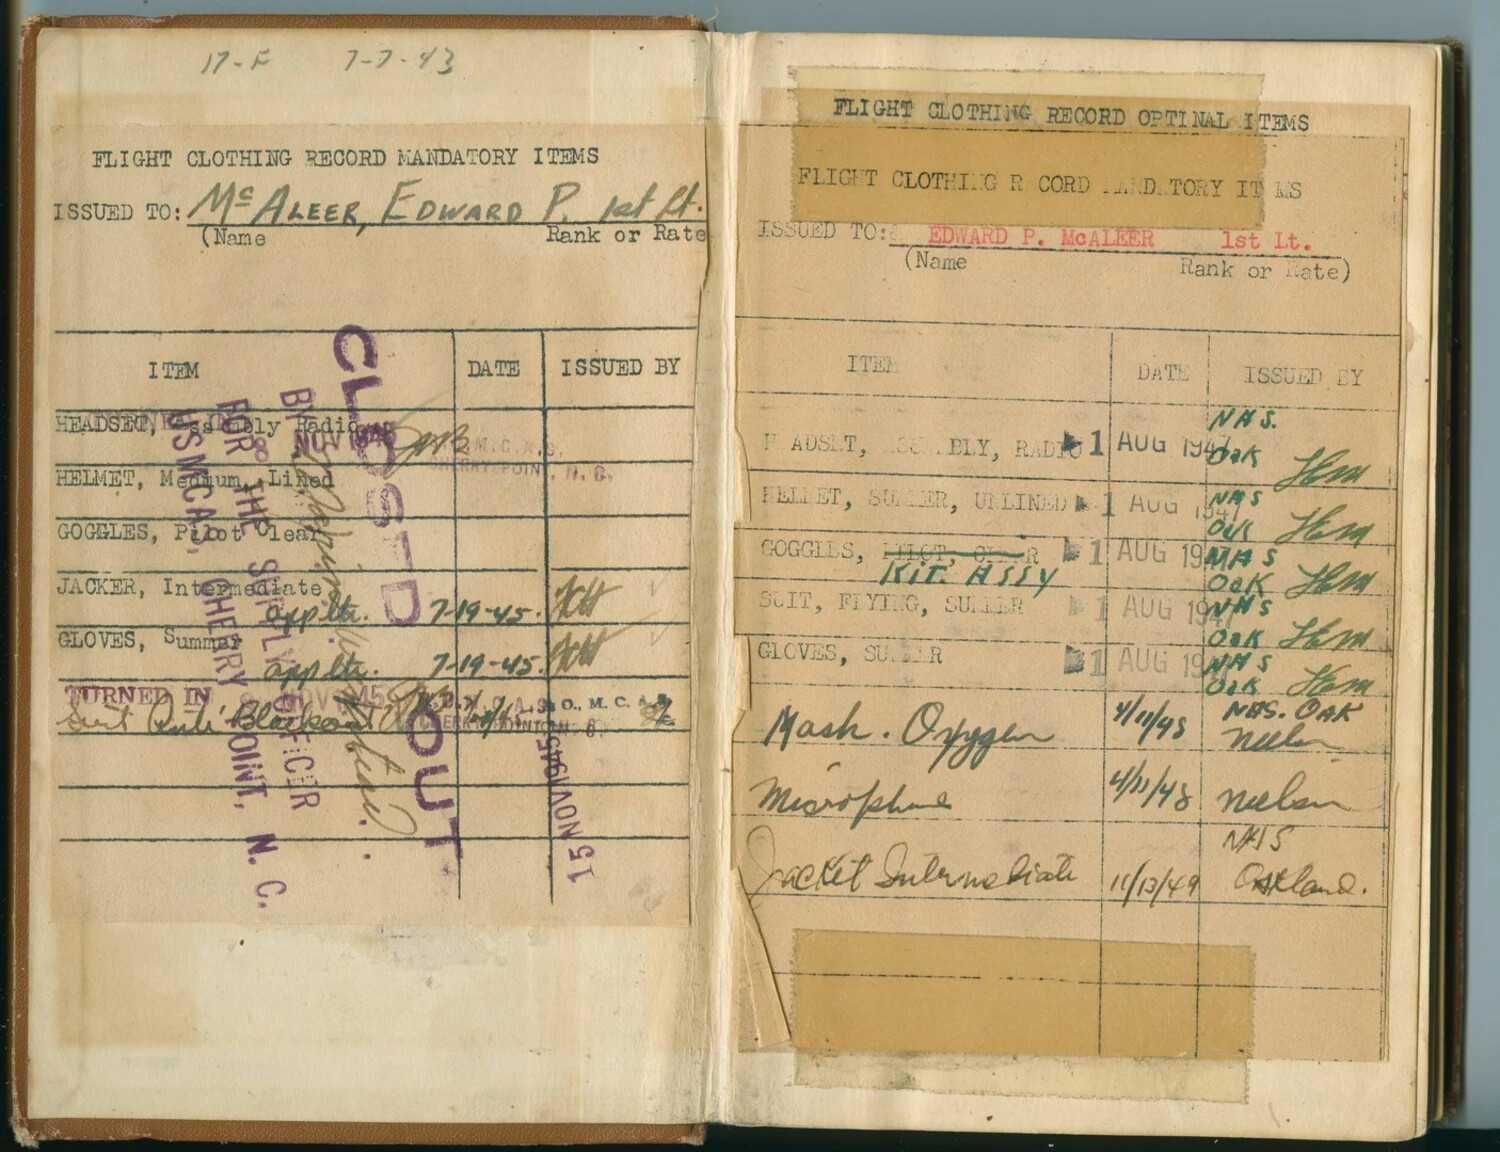 17-F 7-7-43
FLIGHT CLOTHING RECORD MANDATORY ITEMS
ISSUED TO: McALEER, EDWARD P. 1st Lt.
(Name Rank or Rate
ITEM DATE ISSUED BY
HEADSET, Assembly Radio
HELMET, Medium, Lined
GOGGLES, Pilot lear
JACKER, Intermediate
app ltr. 7-19-45.
GLOVES, Summer
app ltr. 7-19-45.
TURNED IN
Suit Anti Blackout
CLOSED OUT
BY
FOR THE SUPPLY OFFICER
USMCAS, CHERRY POINT, N. C.
M.C.A.S.
CHERRY POINT, N. C.
15 NOV 1945
FLIGHT CLOTHING RECORD OPTINAL ITEMS
FLIGHT CLOTHING RECORD MANDATORY ITEMS
ISSUED TO: EDWARD P. McALEER 1st Lt.
(Name Rank or Rate)
ITEM DATE ISSUED BY
HEADSET, ASSEMBLY, RADIO 1 AUG 1947 NAS. Oak
HELMET, SUMMER, UNLINED 1 AUG 1947 NAS Oak
GOGGLES, PILOT, CLEAR 1 AUG 1947 NAS Oak
Kit ASSY
SUIT, FLYING, SUMMER 1 AUG 1947 NAS Oak
GLOVES, SUMMER 1 AUG 1947 NAS Oak
Mask. Oxygen 4/11/48 NAS. OAK Neelsen
Microphone 4/11/48 Neelsen
Jacket Intermediate 11/13/49 NAS Oakland.